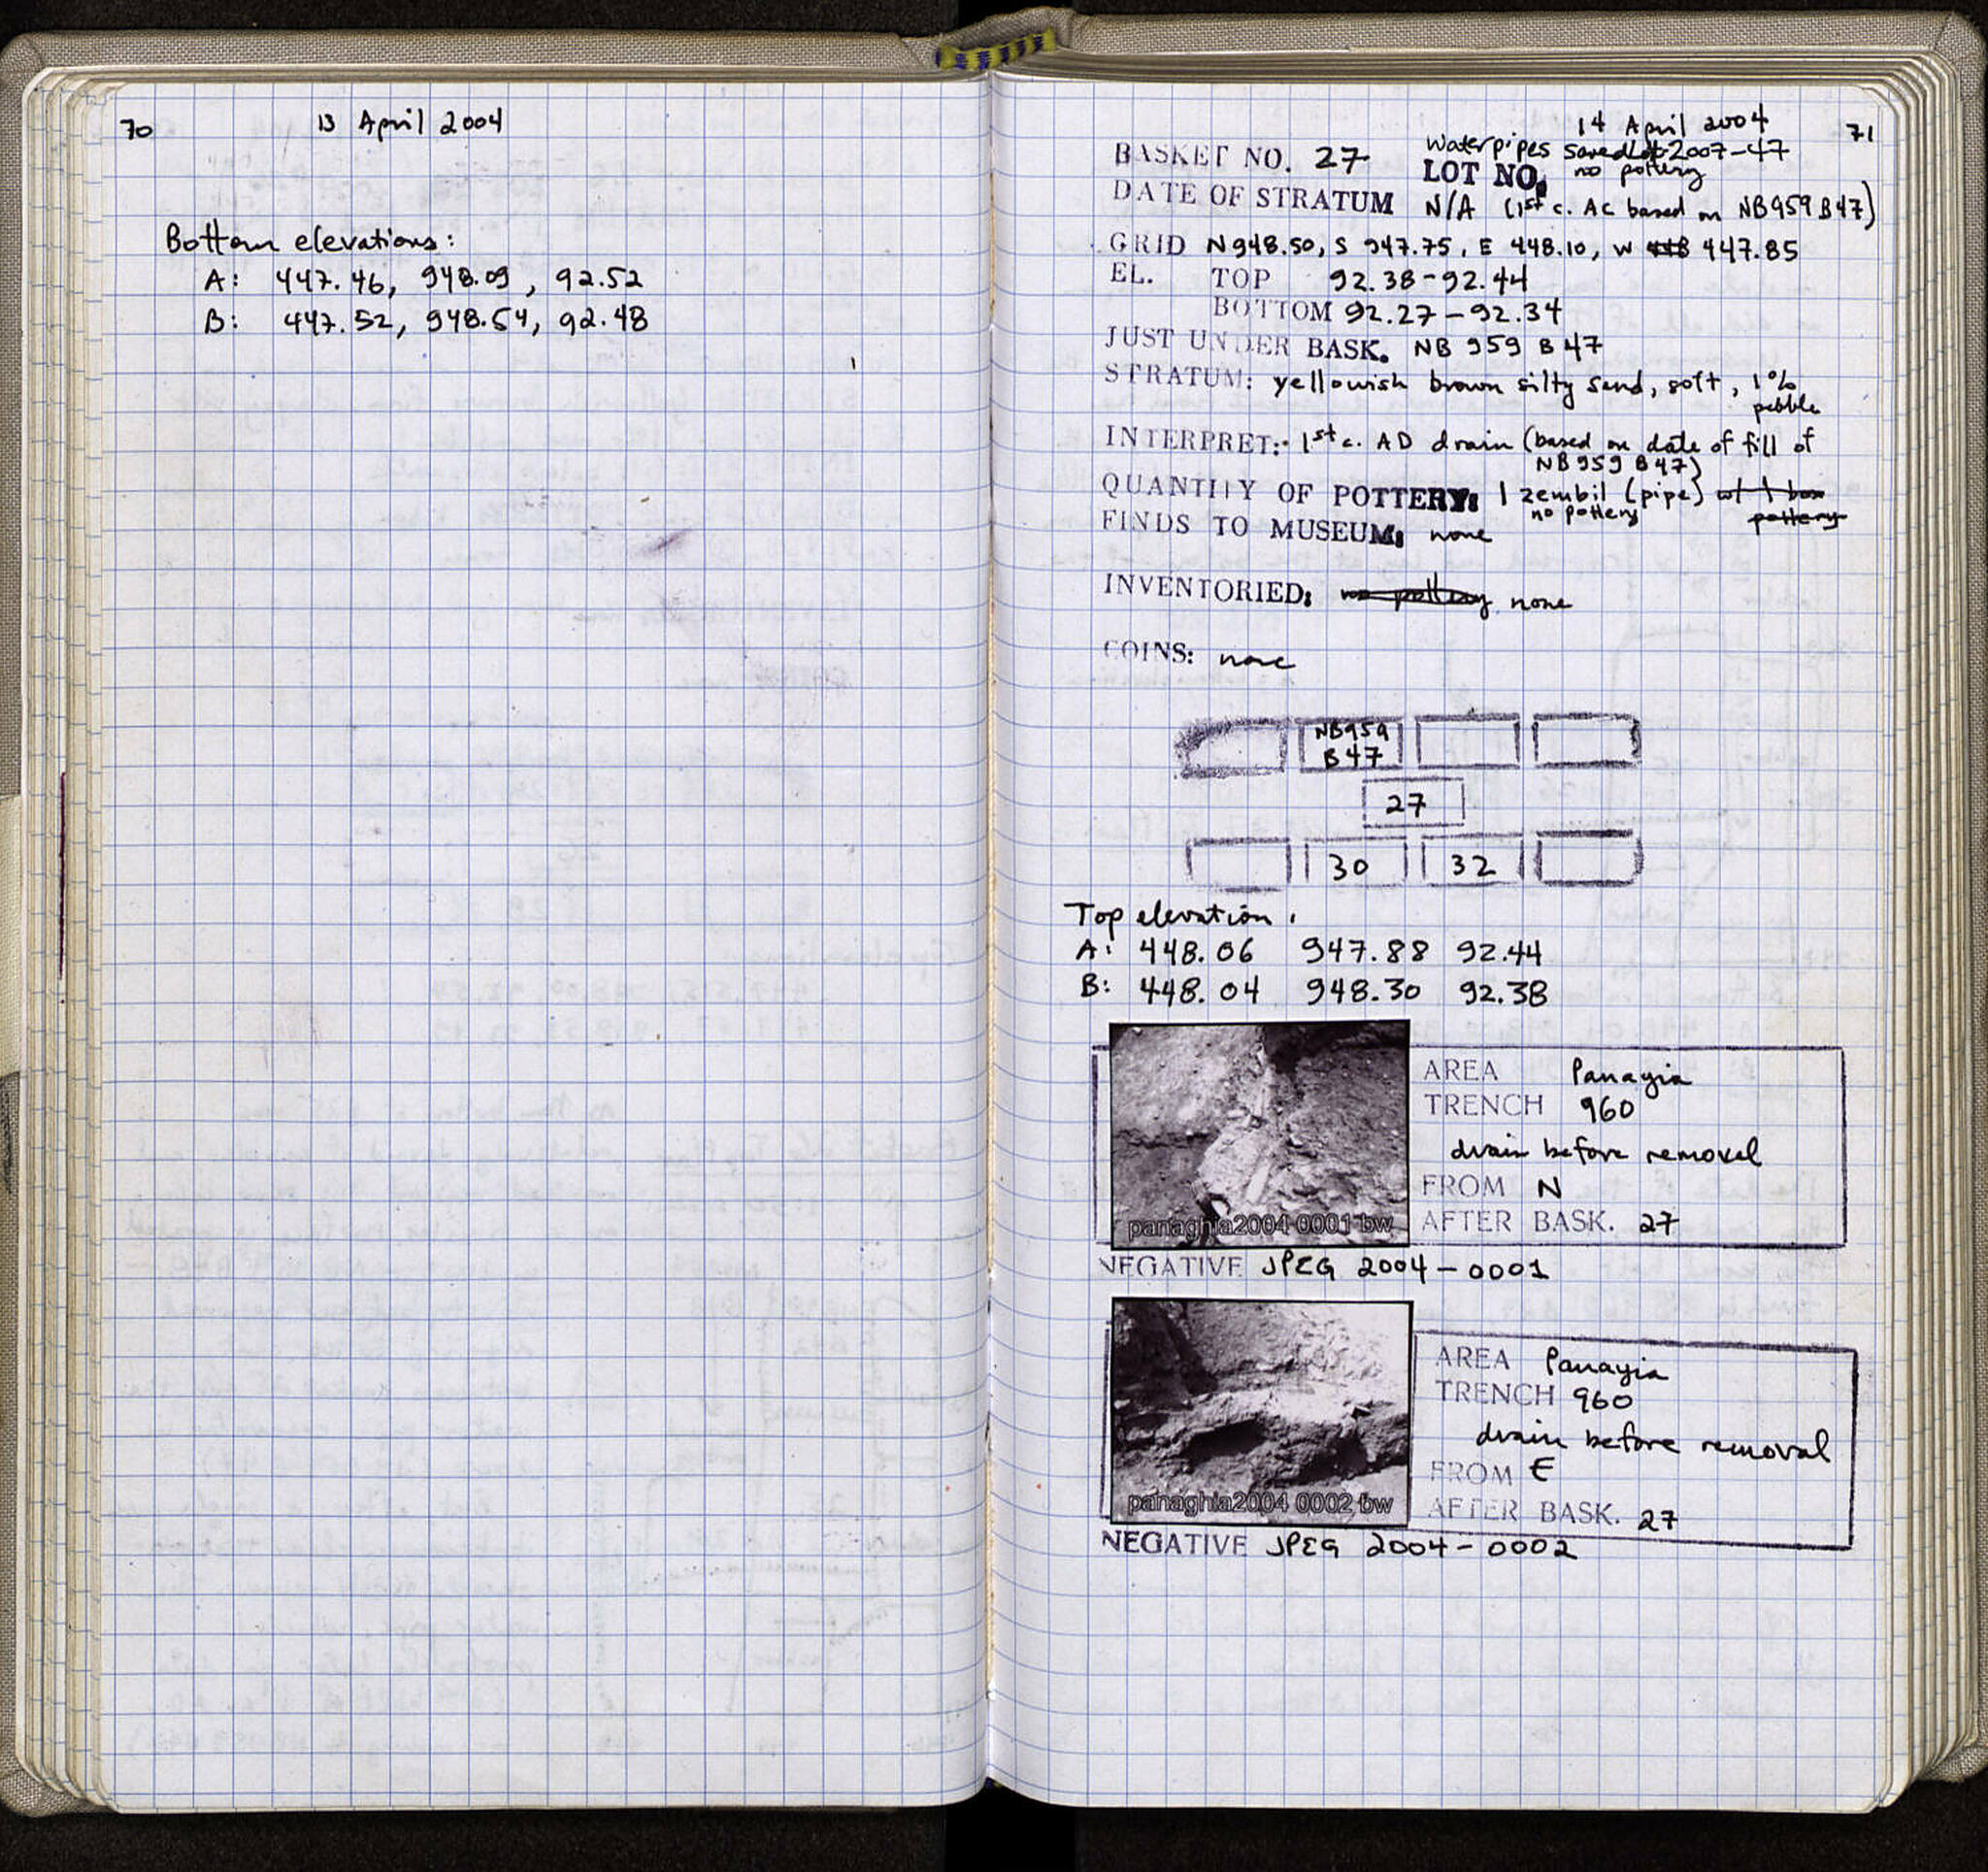 70
13 April 2004
Bottom elevations:
A: 447.46, 948.09, 92.52
B: 447.52, 948.54, 92.48
14 April 2004
71
BASKET NO. 27
Waterpipes saved Lot 2007-47
LOT NO. no pottery
DATE OF STRATUM N/A (1st c. AC based on NB959 B47)
GRID N948.50, S 947.75, E 448.10, W 448 447.85
EL. TOP 92.38-92.44
BOTTOM 92.27-92.34
JUST UNDER BASK. NB 959 B47
STRATUM: yellowish brown silty sand, soft, 1%
pebble
INTERPRET: 1st c. AD drain (based on date of fill of
NB959 B47)
QUANTITY OF POTTERY: 1 zembil (pipe) w/ 1 box
no pottery pottery
FINDS TO MUSEUM: none
INVENTORIED: no pottery none
COINS: none
NB959
B47
27
30 32
Top elevation.
A: 448.06 947.88 92.44
B: 448.04 948.30 92.38
AREA Panayia
TRENCH 960
drain before removal
FROM N
AFTER BASK. 27
panaghia2004 0001 bw
NEGATIVE JPEG 2004-0001
AREA Panayia
TRENCH 960
drain before removal
FROM E
AFTER BASK. 27
panaghia2004 0002 bw
NEGATIVE JPEG 2004-0002